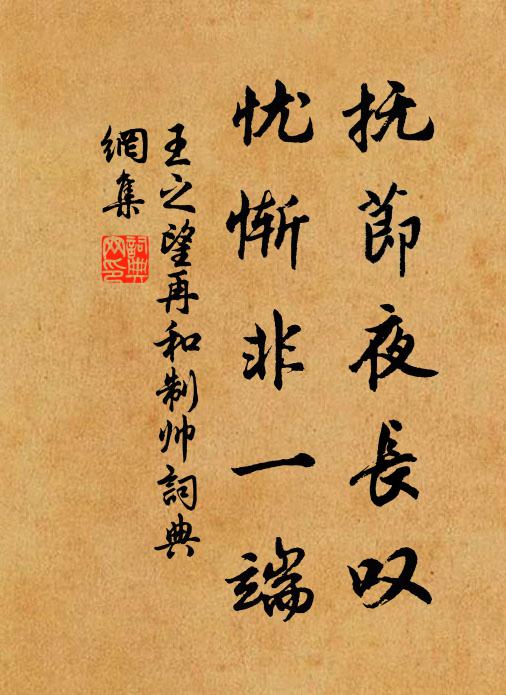 抚節夜長叹
忧惭非一端
王之望再和制帅詞典
網集
詞典
网印